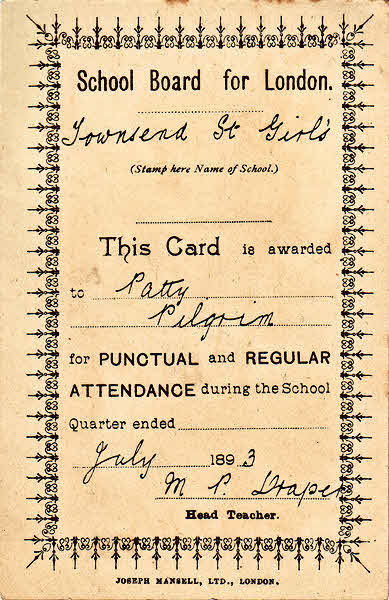 School Board for London.
Townsend St Girl's
(Stamp here Name of School.)
This Card is awarded
to Patty
Pilgrim
for PUNCTUAL and REGULAR
ATTENDANCE during the School
Quarter ended
July 1893
M P. Draper
Head Teacher.
JOSEPH MANSELL, LTD., LONDON.